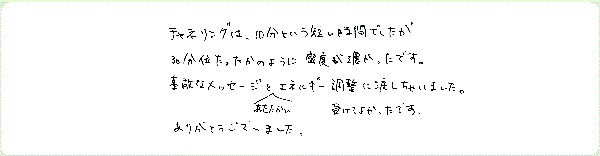 チャネリングは、10分という短い時間でしたが
30分位たったかのように 密度が濃かったです。
素敵なメッセージとエネルギー調整に涙しちゃいました。
あたたかい 受けてよかったです.
ありがとうございました.